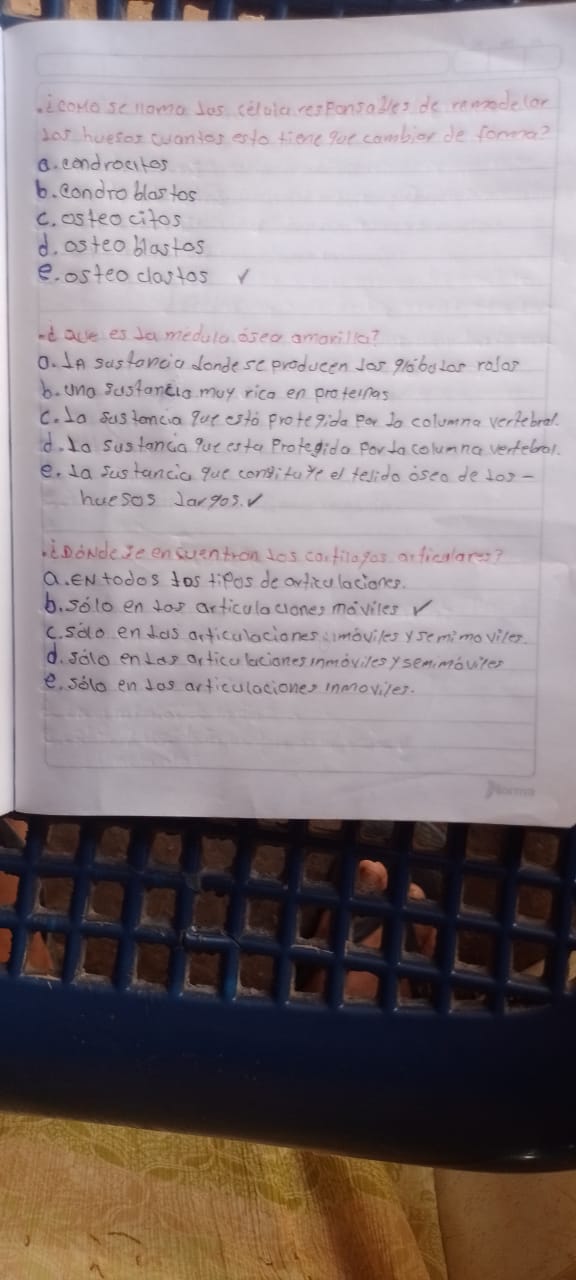 .¿como se llama las célula responsables de remodelar
los huesos cuantos esto tiene que cambiar de forma?
a. condrocitos
b. Condro blastos
c. osteo citos
d. osteo blastos
e. osteo clastos ✓
¿ que es la médula ósea amarilla?
a. LA sustancia donde se producen los glóbulos rojos
b. una sustancia muy rica en proteínas
c. la sustancia que está protegida por la columna vertebral.
d. la sustancia que esta Protegida por la columna vertebral.
e. la sustancia que constituye el tejido óseo de los -
huesos largos. ✓
.¿DóNde se encuentran los cartílagos articulares?
a. EN todos los tipos de articulaciones.
b. sólo en las articulaciones móviles ✓
c. sólo en las articulaciones imóviles y semimoviles.
d. sólo en las articulaciones inmóviles y semimóviles
e. sólo en las articulaciones inmoviles.
Norma